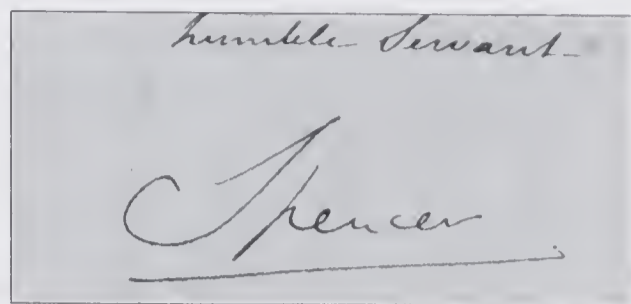 humble Servant
Spencer